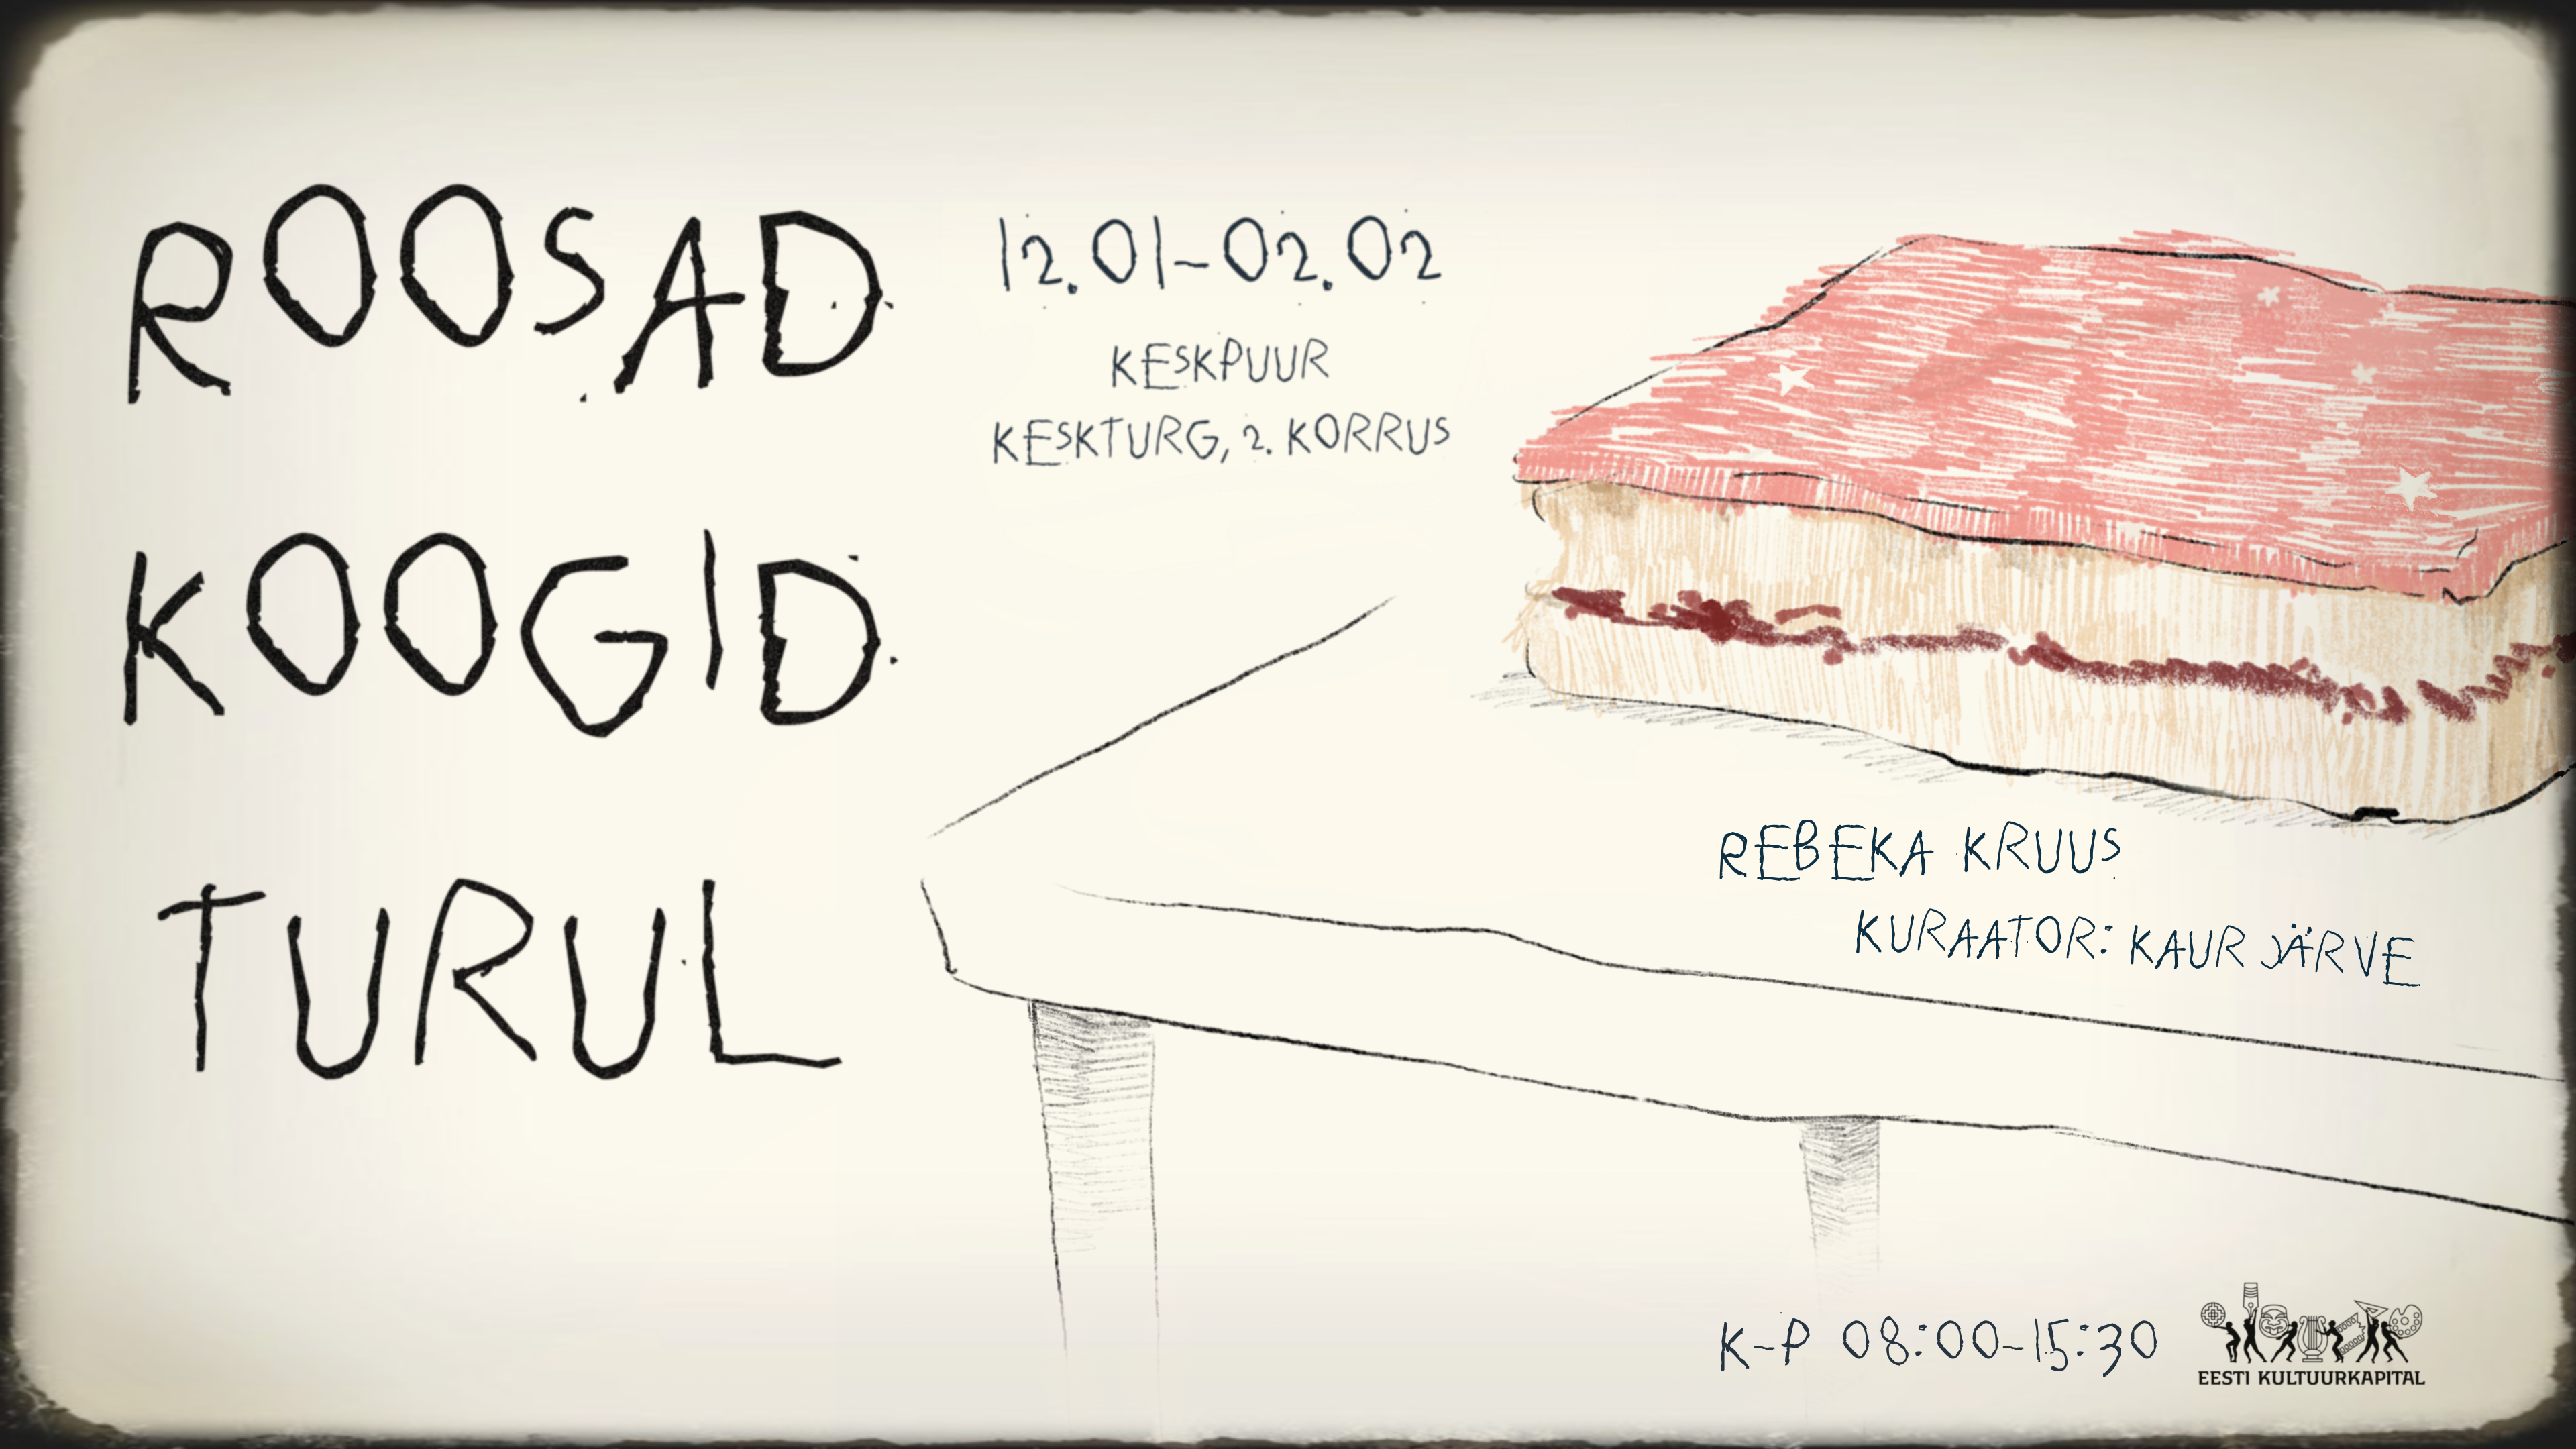 ROOSAD
KOOGID
TURUL
12.01-02.02
KESKPUUR
KESKTURG, 2. KORRUS
REBEKA KRUUS
KURAATOR: KAUR JÄRVE
K-P 08:00-15:30
EESTI KULTUURKAPITAL